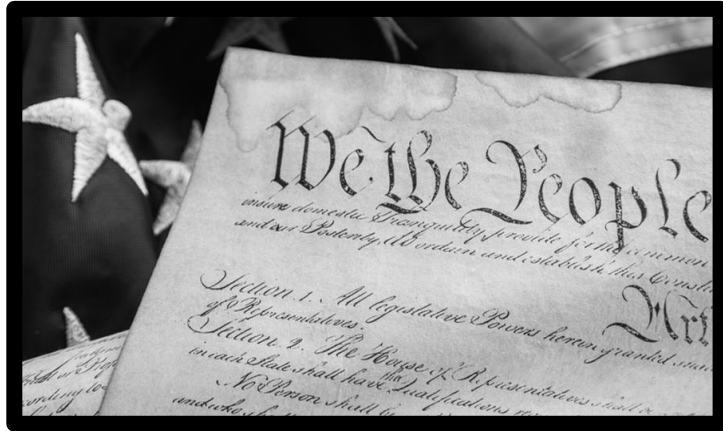 We the People
insure domestic Tranquility, provide for the common
and our Posterity, do ordain and establish this Consti
Art
Section. 1. All legislative Powers herein granted shall
of Representatives.
Section. 2. The House of Representatives shall be
in each State shall have the Qualifications
No Person shall be
and who shall